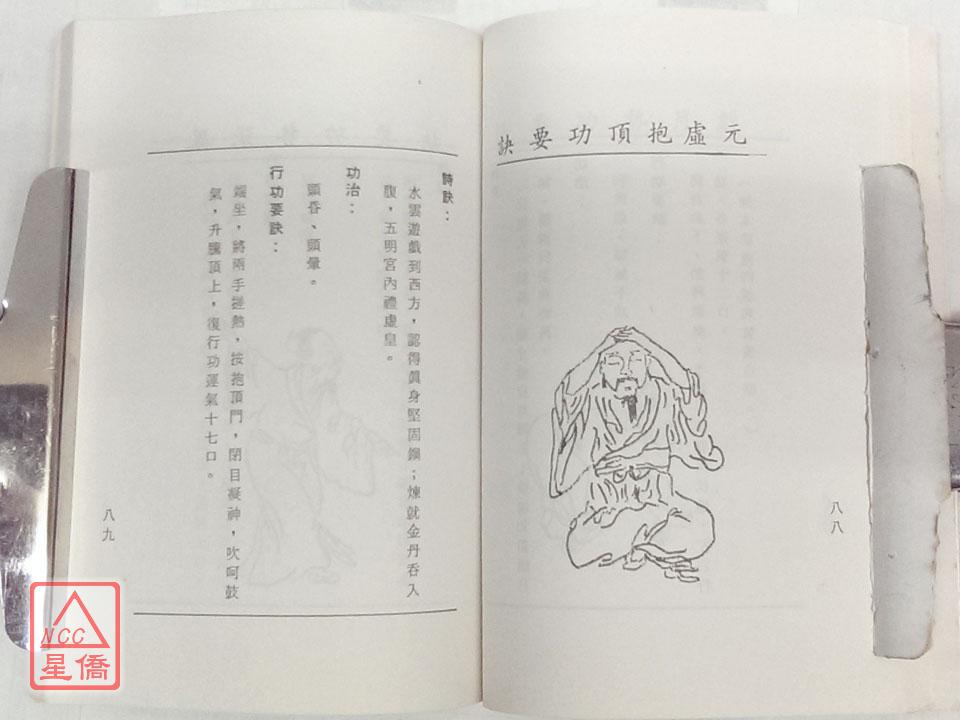 元虛抱頂功要訣
八八
詩訣：
水雲遊戲到西方，認得眞身堅固鋼；煉就金丹吞入
腹，五明宮內禮虛皇。
功治：
頭昏、頭暈。
行功要訣：
端坐，將兩手搓熱，按抱頂門，閉目凝神，吹呵鼓
氣，升騰頂上，復行功運氣十七口。
八九
NCC
星僑